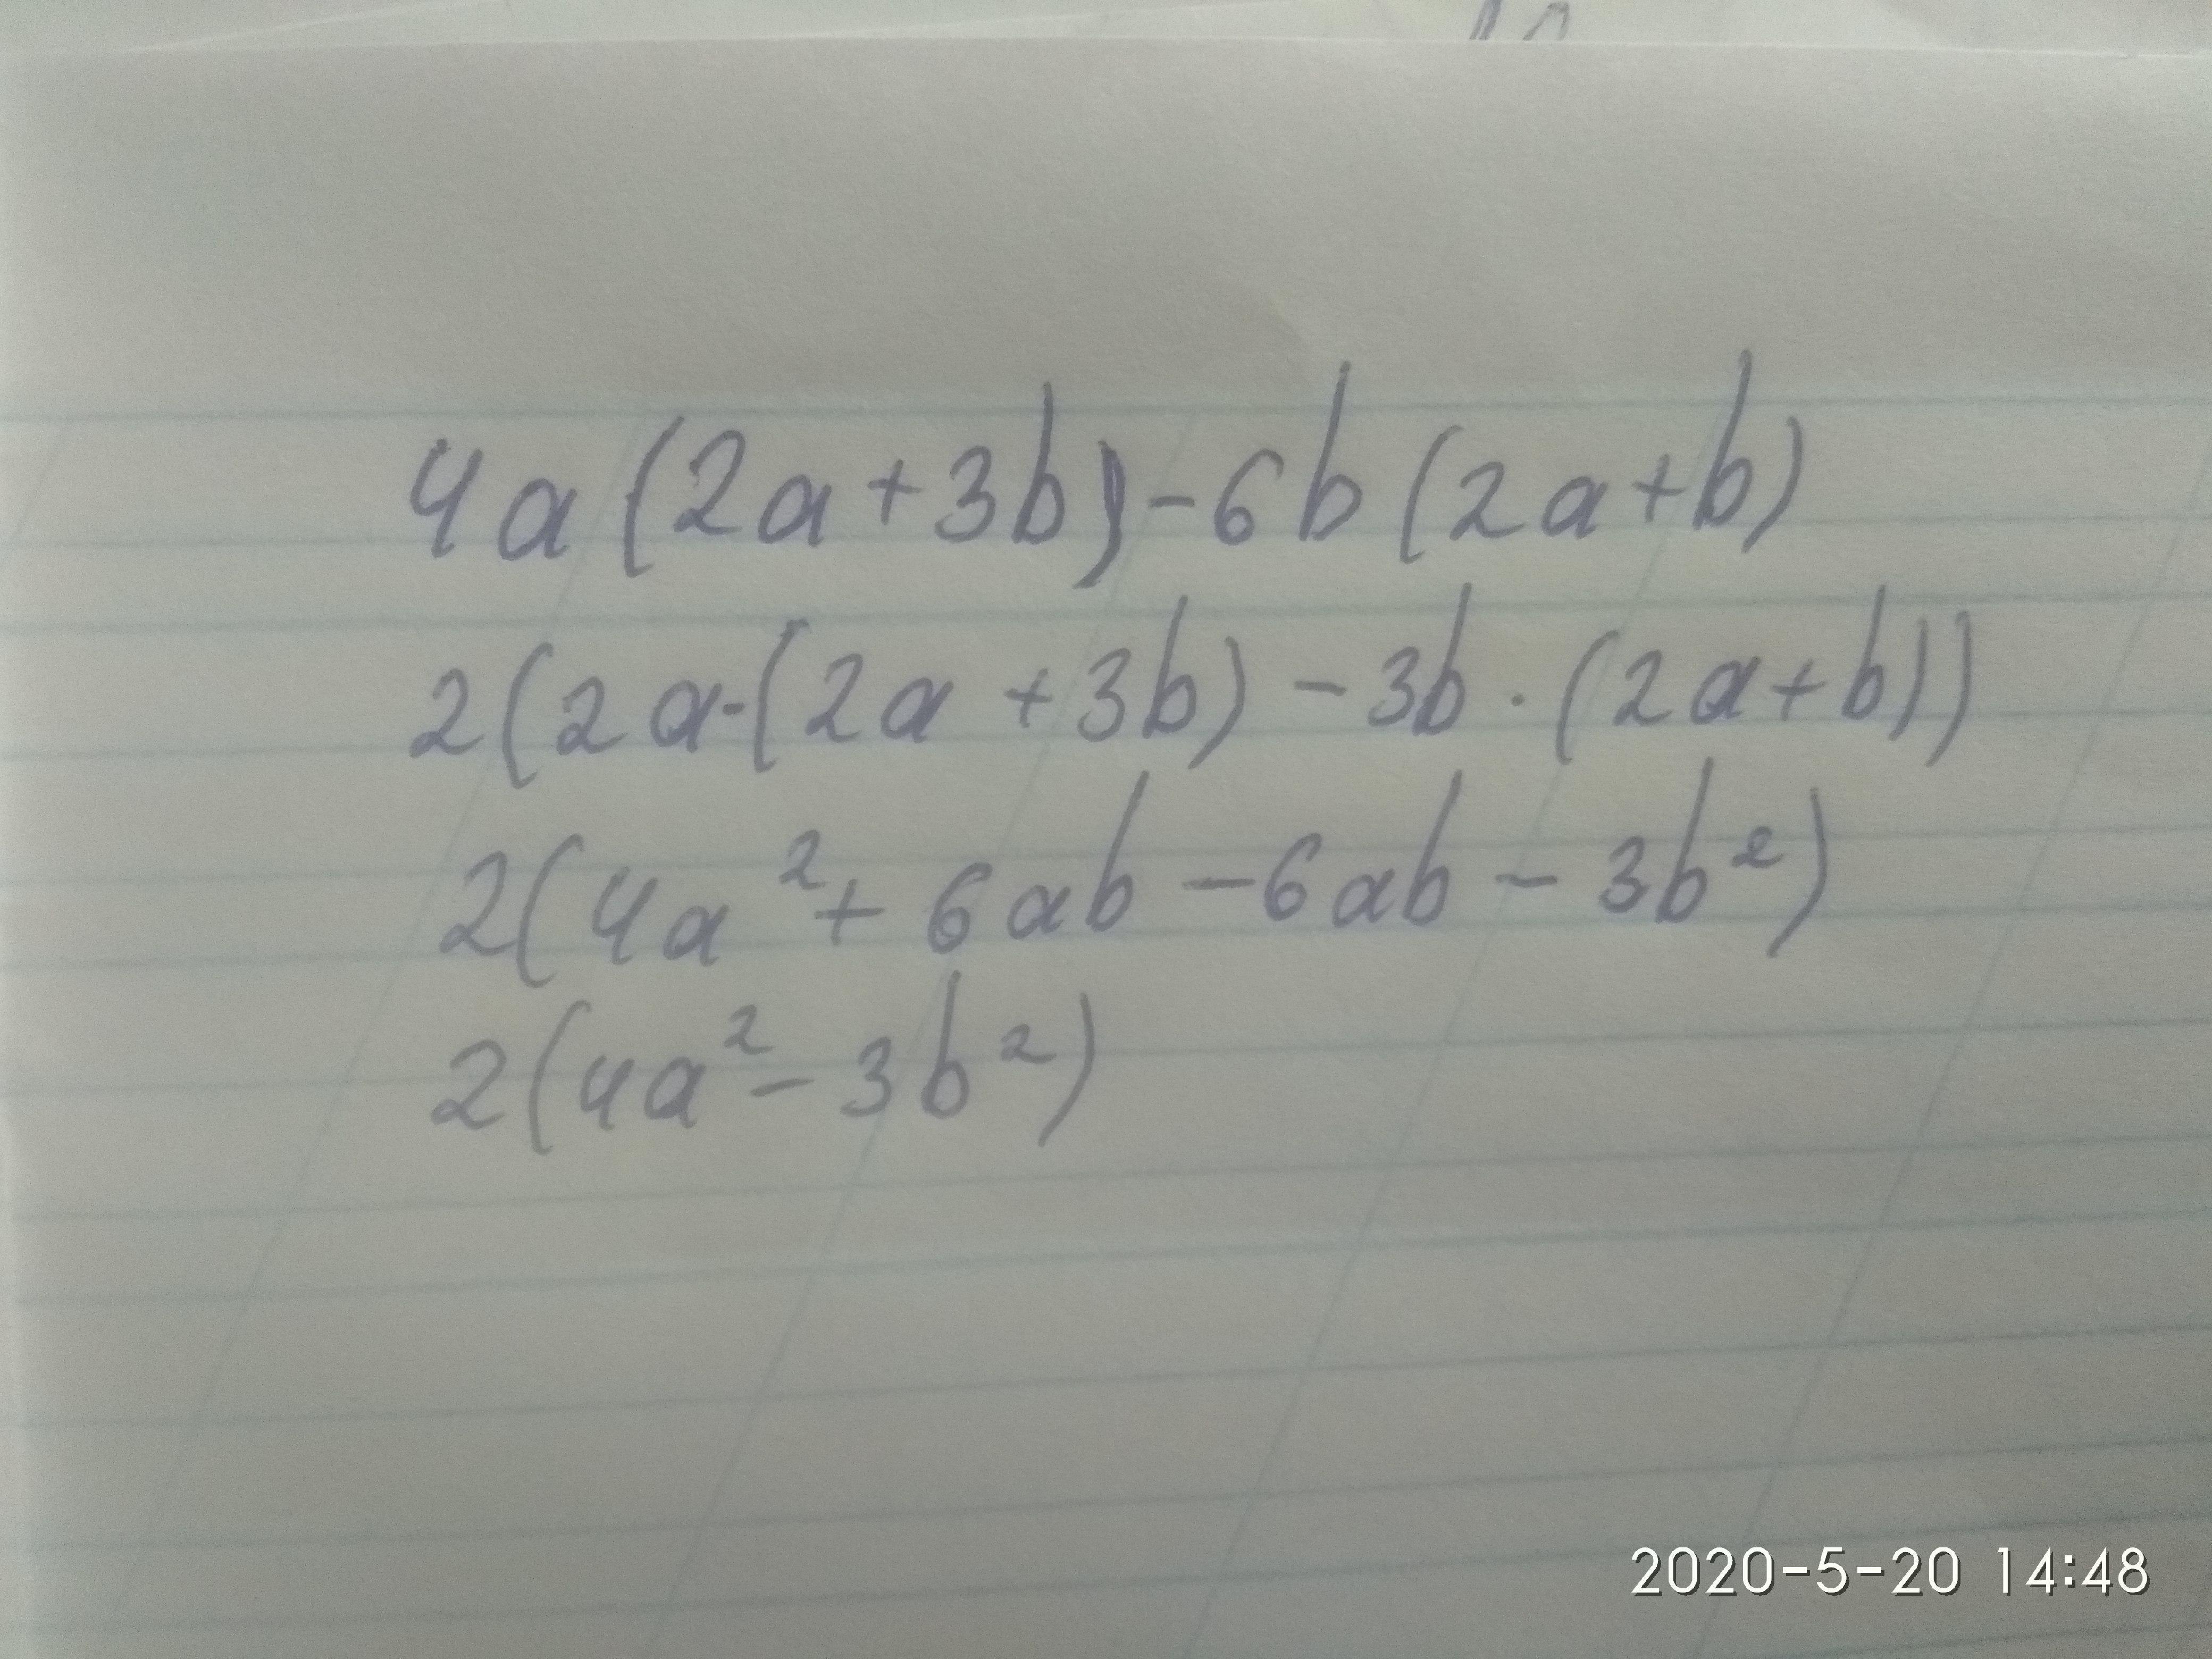 4a(2a+3b)-6b(2a+b)
2(2a·(2a+3b)-3b·(2a+b))
2(4a²+6ab-6ab-3b²)
2(4a²-3b²)
2020-5-20 14:48